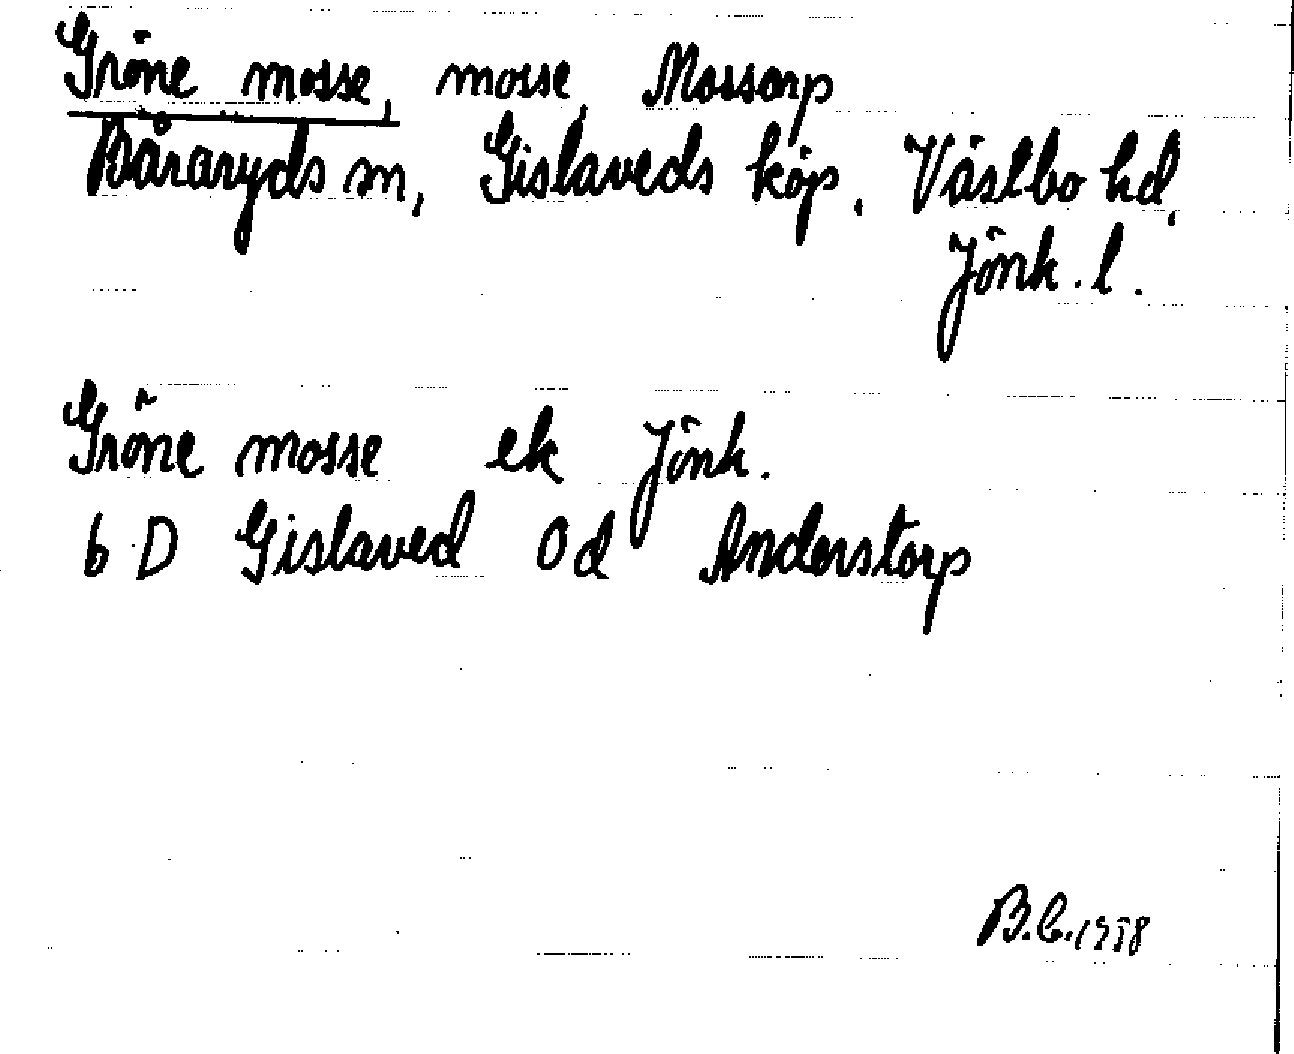 Gröne mosse, mosse, Mossarp
Båraryds sn, Gislaveds köp. Västbo hd,
Jönk. l.
Gröne mosse ek Jönk.
6 D Gislaved 0d Anderstorp
B.C. 1958